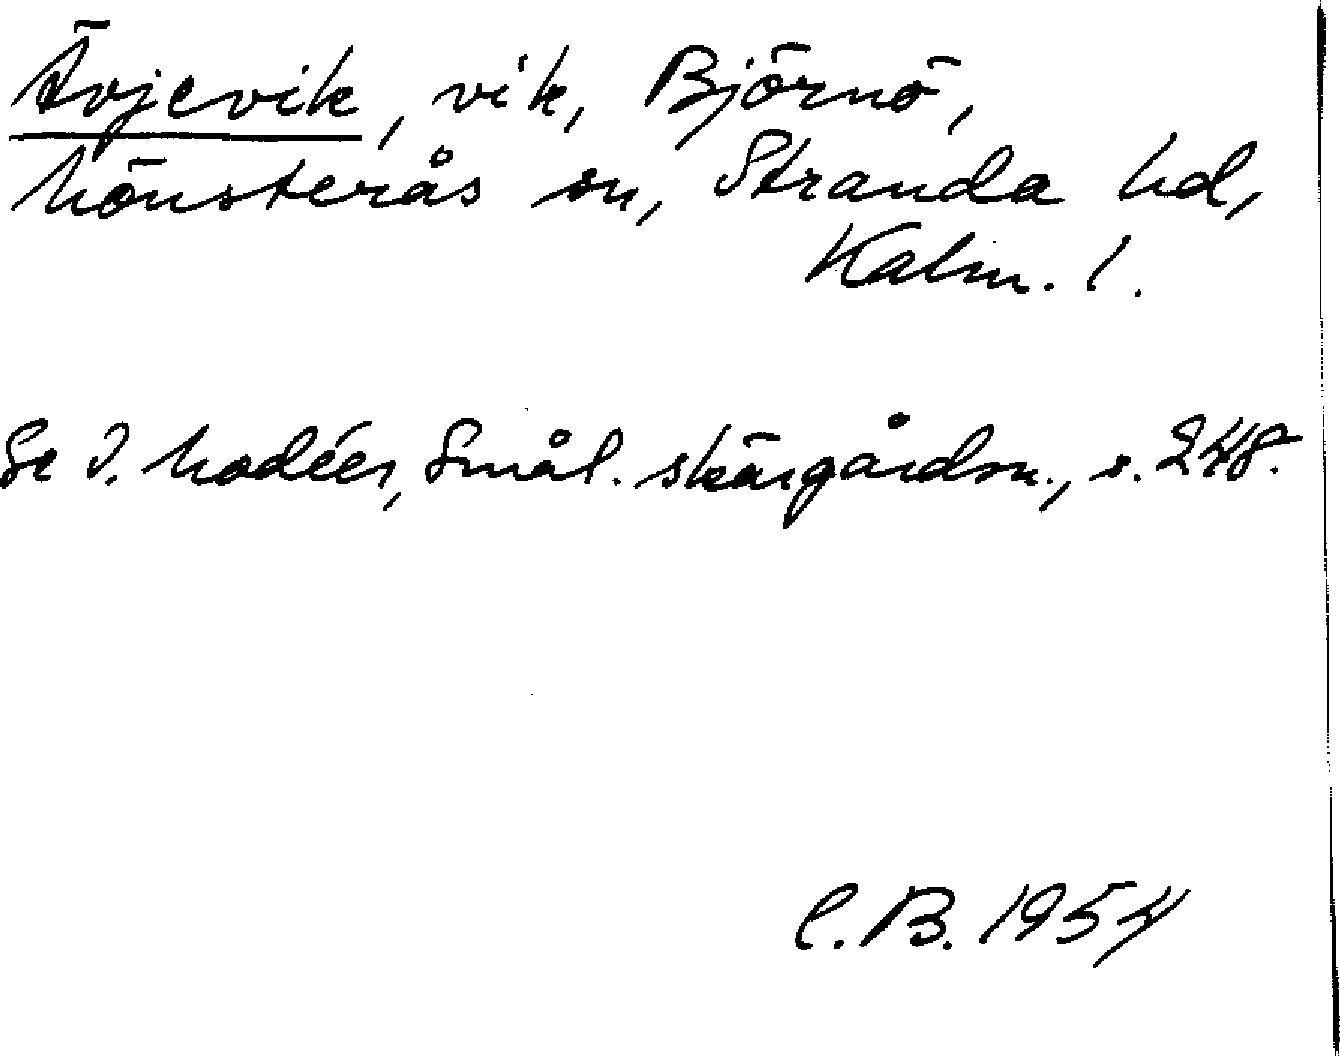 Ävjevik, vik, Björnö,
Mönsterås sn, Stranda hd,
Kalm. l.
Se I. Modéer, Smål. skärgårdsn., s. 248.
C.B. 1954